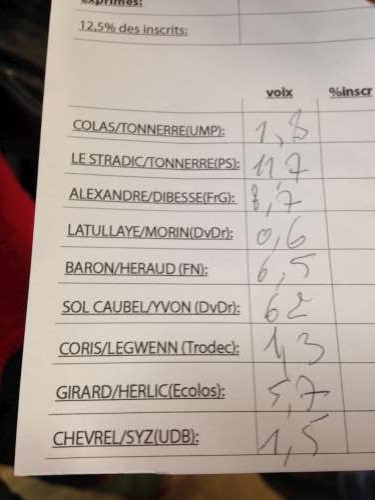 exprimés:
12,5% des inscrits:
voix %inscr
COLAS/TONNERRE(UMP): 1,8
LE STRADIC/TONNERRE(PS): 11,7
ALEXANDRE/DIBESSE(FrG): 8,7
LATULLAYE/MORIN(DvDr): 0,6
BARON/HERAUD (FN): 6,5
SOL CAUBEL/YVON (DvDr): 62
CORIS/LEGWENN (Trodec): 1,3
GIRARD/HERLIC(Ecolos): 5,7
CHEVREL/SYZ(UDB): 1,5